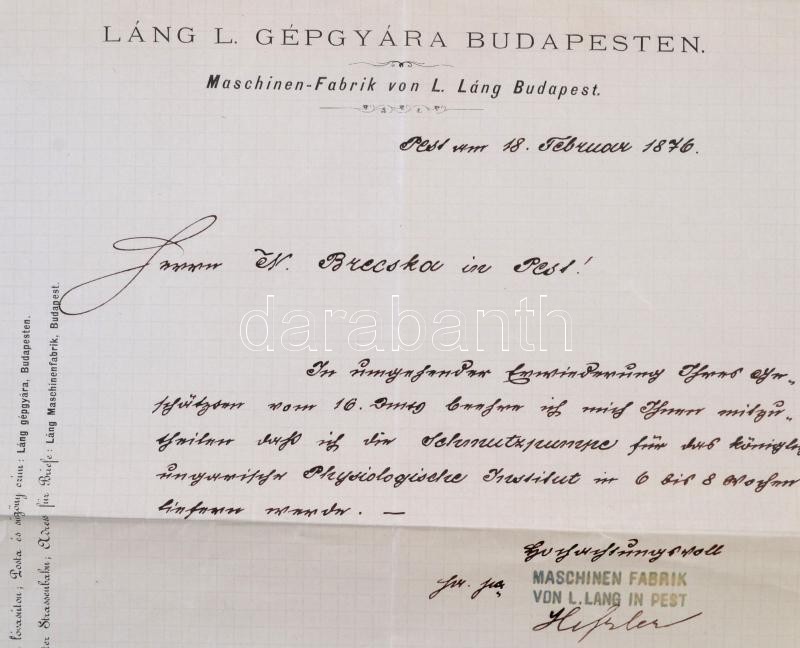 LÁNG L. GÉPGYÁRA BUDAPESTEN.
Maschinen-Fabrik von L. Láng Budapest.
Pest am 18. Februar 1876.
Herrn W. Brecska in Pest!
In umgehender Erwiederung Ihres Ge-
schätzten vom 16. beehre ich mich Ihnen mitzu-
theilen daß ich die Schmutzpumpe für das königlich
ungarische Physiologische Institut in 6 bis 8 Wochen
liefern werde. —
Hochachtungsvoll
MASCHINEN FABRIK
VON L. LANG IN PEST
lóvasúton; Posta és sürgöny czím: Láng gépgyára, Budapesten.
der Strassenbahn; Adress für Briefe: Láng Maschinenfabrik, Budapest.
darabanth